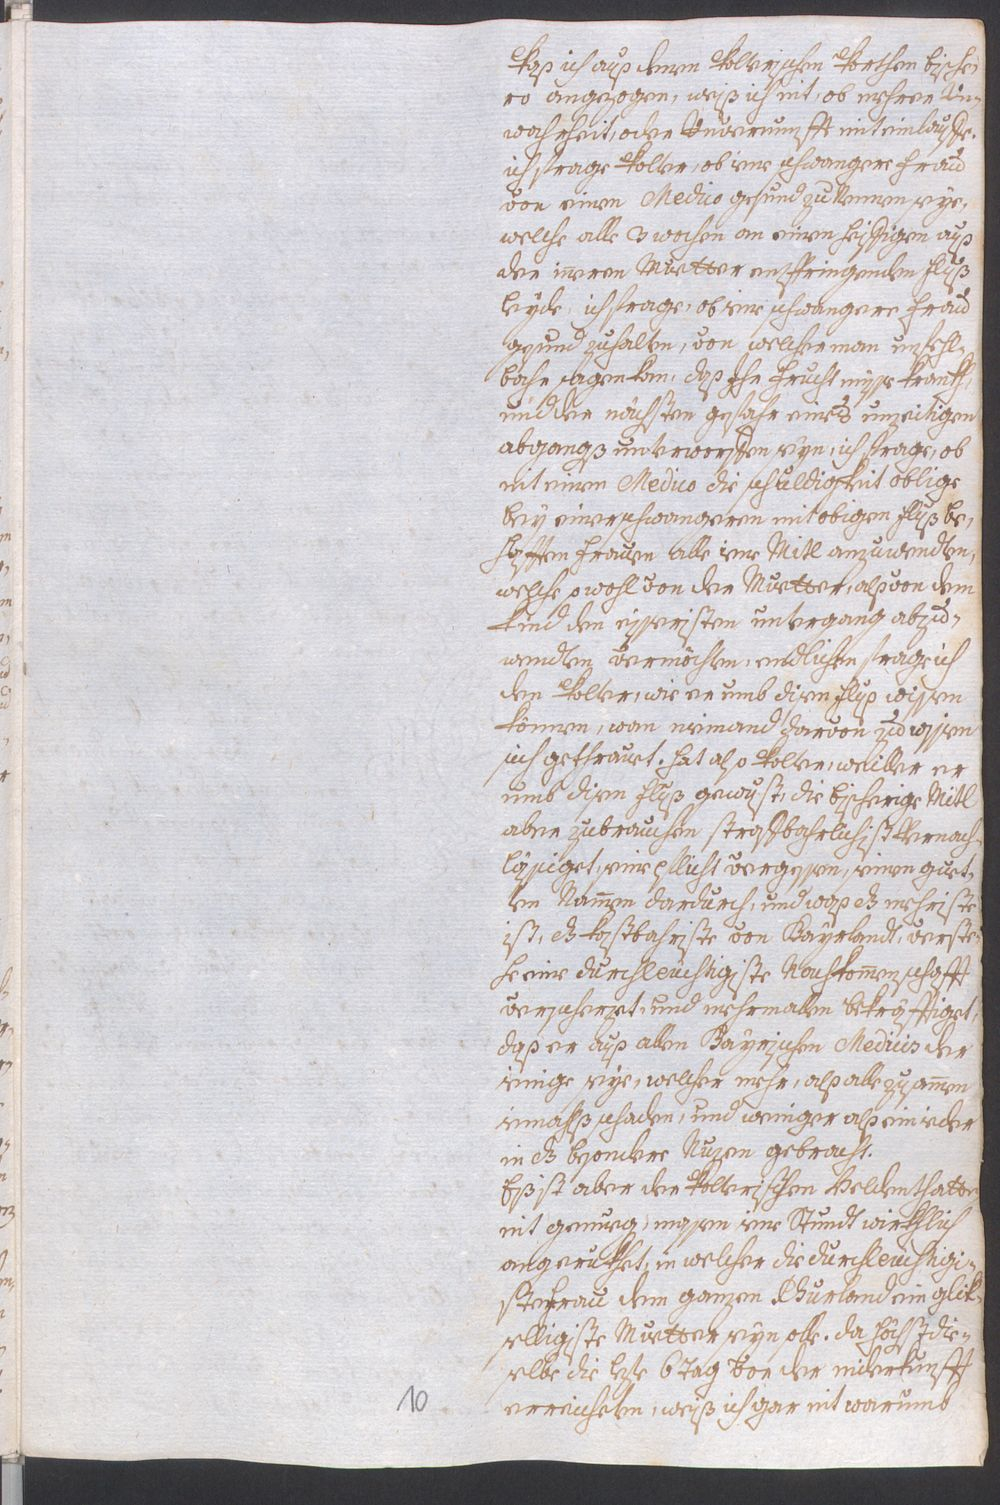 Waß ich auß denen Wolterischen Worthen bißhe-
ro angezogen, weiß ich nit, ob mehrer Un-
wahrheit, oder Unvernunfft mit einlauffe.
ich frage Wolter, ob eine schwangere Frau
von einen Medico gesund zu nennen seye,
welche alle 3 wochen an einen hizigen auß
der inneren Muetter entspringenden Fluß
leyde, ich frage, ob eine schwangere Frau
gesund zuhalten, von welcher man unfehl-
bahr sagen kan, daß ihr Frucht müsse krankh,
und der nächsten gefahr eines unzeitigen
abgangß unterworffen seyn, ich frage, ob
nit einen Medico die schuldigkeit oblige
bey einer schwangeren mit obigen Fluß be-
hafften Frauen alle jene Mitl anzuwendten,
welche sowohl von der Muetter, alß von dem
Kind den eisseristen untergang abzu-
wendten vermöchten, endlichen frage ich
den Wolter, wie er umb disen Fluß wissen
können, wan niemand darvon zu wissen
sich gethrauet. hat also Wolter, weiller er
umb disen Fluß gewust, die bißherige Mitl
aber zubrauchen straffbahrlichist vernach-
lässiget, seine pflicht vergessen, seinen guet-
en Nammen dardurch, und waß dz mehriste
ist, dz kostbahriste von Bayrlandt, verste-
he eine durchleüchtigiste Nachkommenschafft
verscherzt, und mehrmallen bekräfftiget,
daß er auß allen Bayrischen Medicis der
jenige seye, welcher mehr, alß alle zusammen
jemahlß schaden, und weniger alß ein ieder
in dz besondere Nuzen gebracht.
Eß ist aber der Wolterischen Heldenthatten
nit genueg, massen jene Stundt wirkhlich
angerukhet, in welcher die durchleüchtigi-
ste Frau dem ganzen Churland ein glik-
seeligiste Muetter seyn solle. da höchst die-
selbe die leste 6 Tag vor der niderkunfft
erreicheten, weiß ich gar nit warumb
10